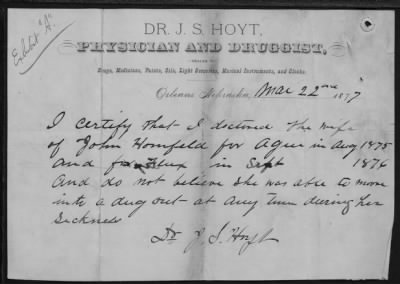 Exhibit "A"
DR. J. S. HOYT,
PHYSICIAN AND DRUGGIST,
DEALER IN
Drugs, Medicines, Paints, Oils, Light Groceries, Musical Instruments, and Clocks.
Orleans Nebraska, Mar 22nd 1877
I certify that I doctored the wife
of John Hornfeld for Ague in Aug 1875
and flux in Sept 1876
And do not believe she was able to move
into a dug out at any time during her
Sickness
Dr J. S. Hoyt